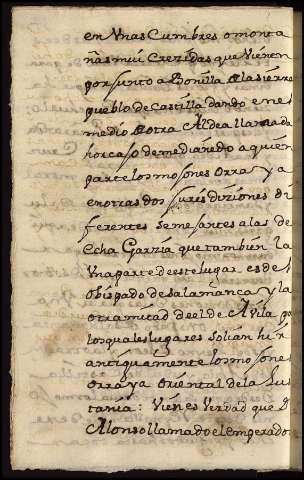 en Vnas Cumbres o monta
ñas mui Crezidas que Vienen
por junto a Bonilla de la sierra
pueblo de Castilla dando en el
medio de otra Aldea llamada
horcajo de medianedo a quien
parte los mojones orra y a
en otras dos juridiziones di
ferentes semejantes a las de
Echa Garzia que tambien la
Vna parte de este lugar es de el
obispado de Salamanca y la
otra mitad de el de Avila po
los quales lugares solian hir
antiguamente los mojones
orraya oriental de la Lus
tania: Vien es Verdad que D
Alonso llamado el emperador